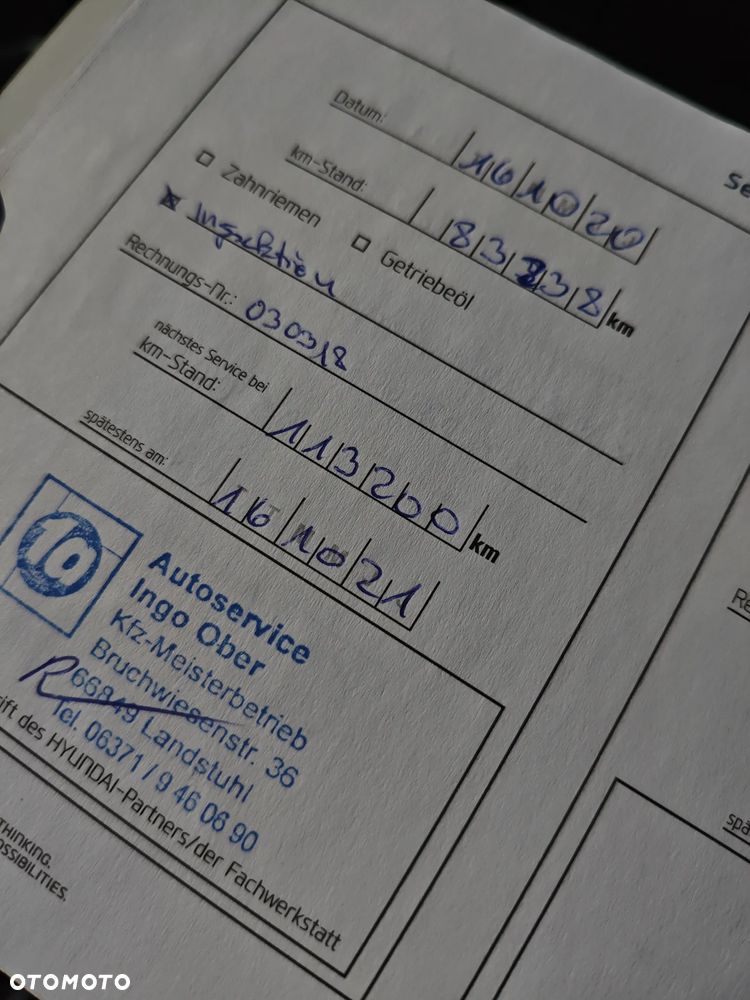 Se
Datum: 161020
km-Stand: 83838 km
Zahnriemen
Getriebeöl
Inspektion
Rechnungs-Nr.: 030318
nächstes Service bei
km-Stand: 113200 km
spätestens am: 161021
10
Autoservice
Ingo Ober
Kfz-Meisterbetrieb
Bruchwiesenstr. 36
66849 Landstuhl
Tel. 06371 / 9 46 06 90
rift des HYUNDAI-Partners/der Fachwerkstatt
THINKING.
OSSIBILITIES.
Re
spä
OTOMOTO